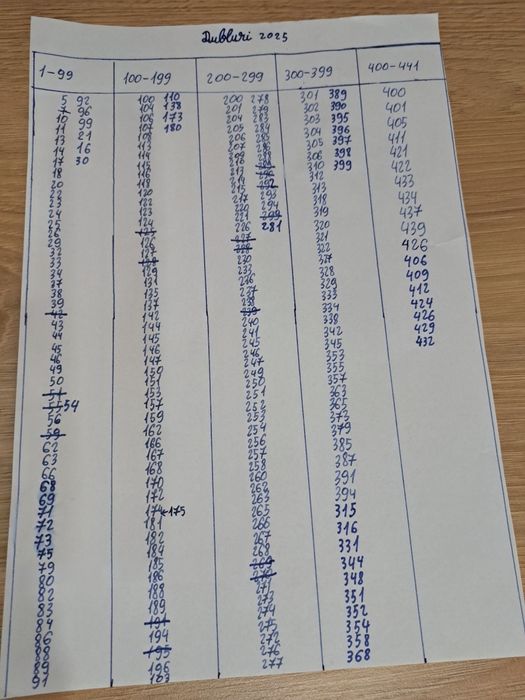 Dubluri 2025
1-99
100-199
200-299
300-399
400-441
5 92
7 96
10 99
11 21
13 16
14 30
17
18
20
22
23
24
25
26
29
32
33
34
37
38
39
43
44
45
46
49
50
51
54
56
59
62
63
66
68
69
71
72
73
75
79
80
82
83
84
86
91
100 110
104 138
106 173
107 180
108
113
114
115
116
118
120
122
123
124
125
126
127
128
129
131
135
137
142
144
145
146
147
150
151
153
157
159
162
166
167
168
170
172
174 175
181
182
184
185
186
188
189
191
194
195
196
200 278
201 279
204 283
205 284
206 285
207 286
220 294
221 299
226 281
227
228
230
233
236
237
238
239
240
241
245
246
247
249
250
251
252
253
254
256
257
258
260
262
263
265
266
267
268
269
270
271
273
274
275
272
276
277
301 389
302 390
303 395
304 396
305 397
306 398
310 399
312
313
318
319
320
321
322
327
328
329
333
334
338
342
345
353
355
357
363
365
373
379
385
387
391
394
315
316
331
344
348
351
352
354
358
368
400
401
405
411
421
422
433
434
437
439
426
406
409
412
424
426
429
432